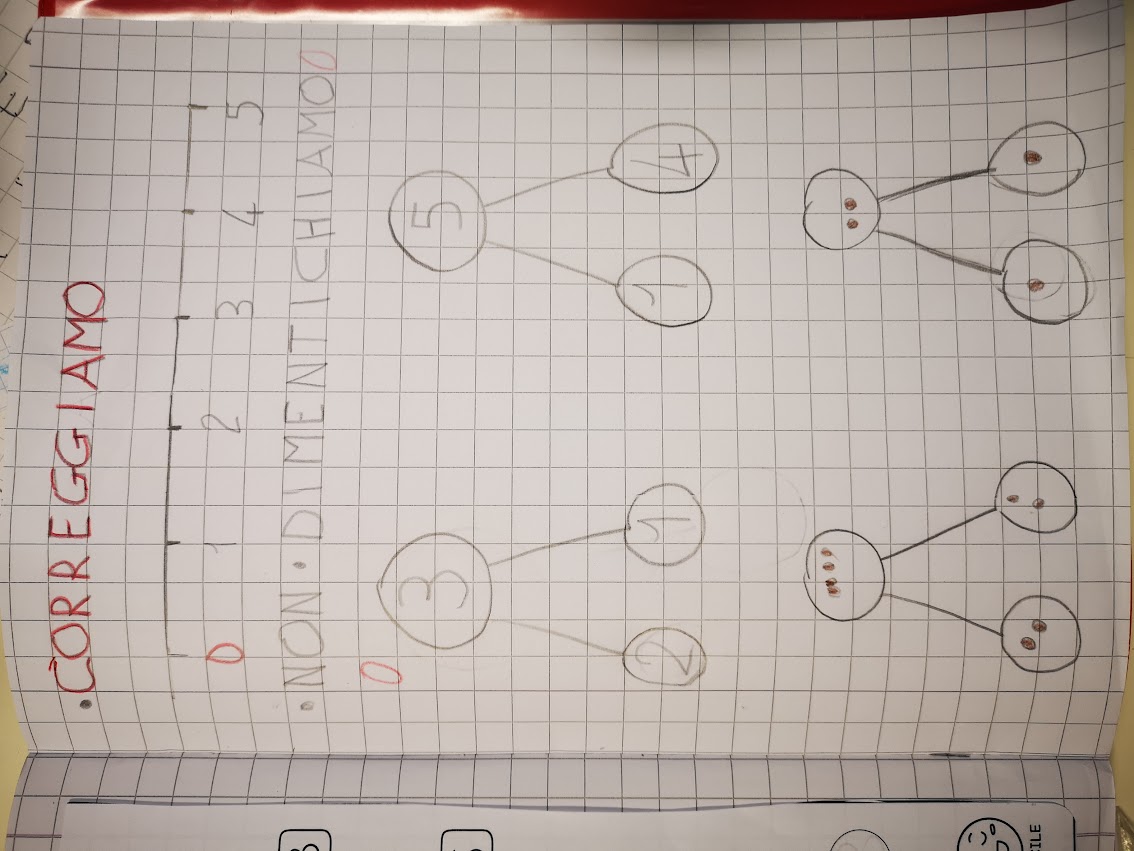 • CORREGGIAMO
0 1 2 3 4 5
• NON • DIMENTICHIAMO 0
0
3 5
2 1 1 4
CILE